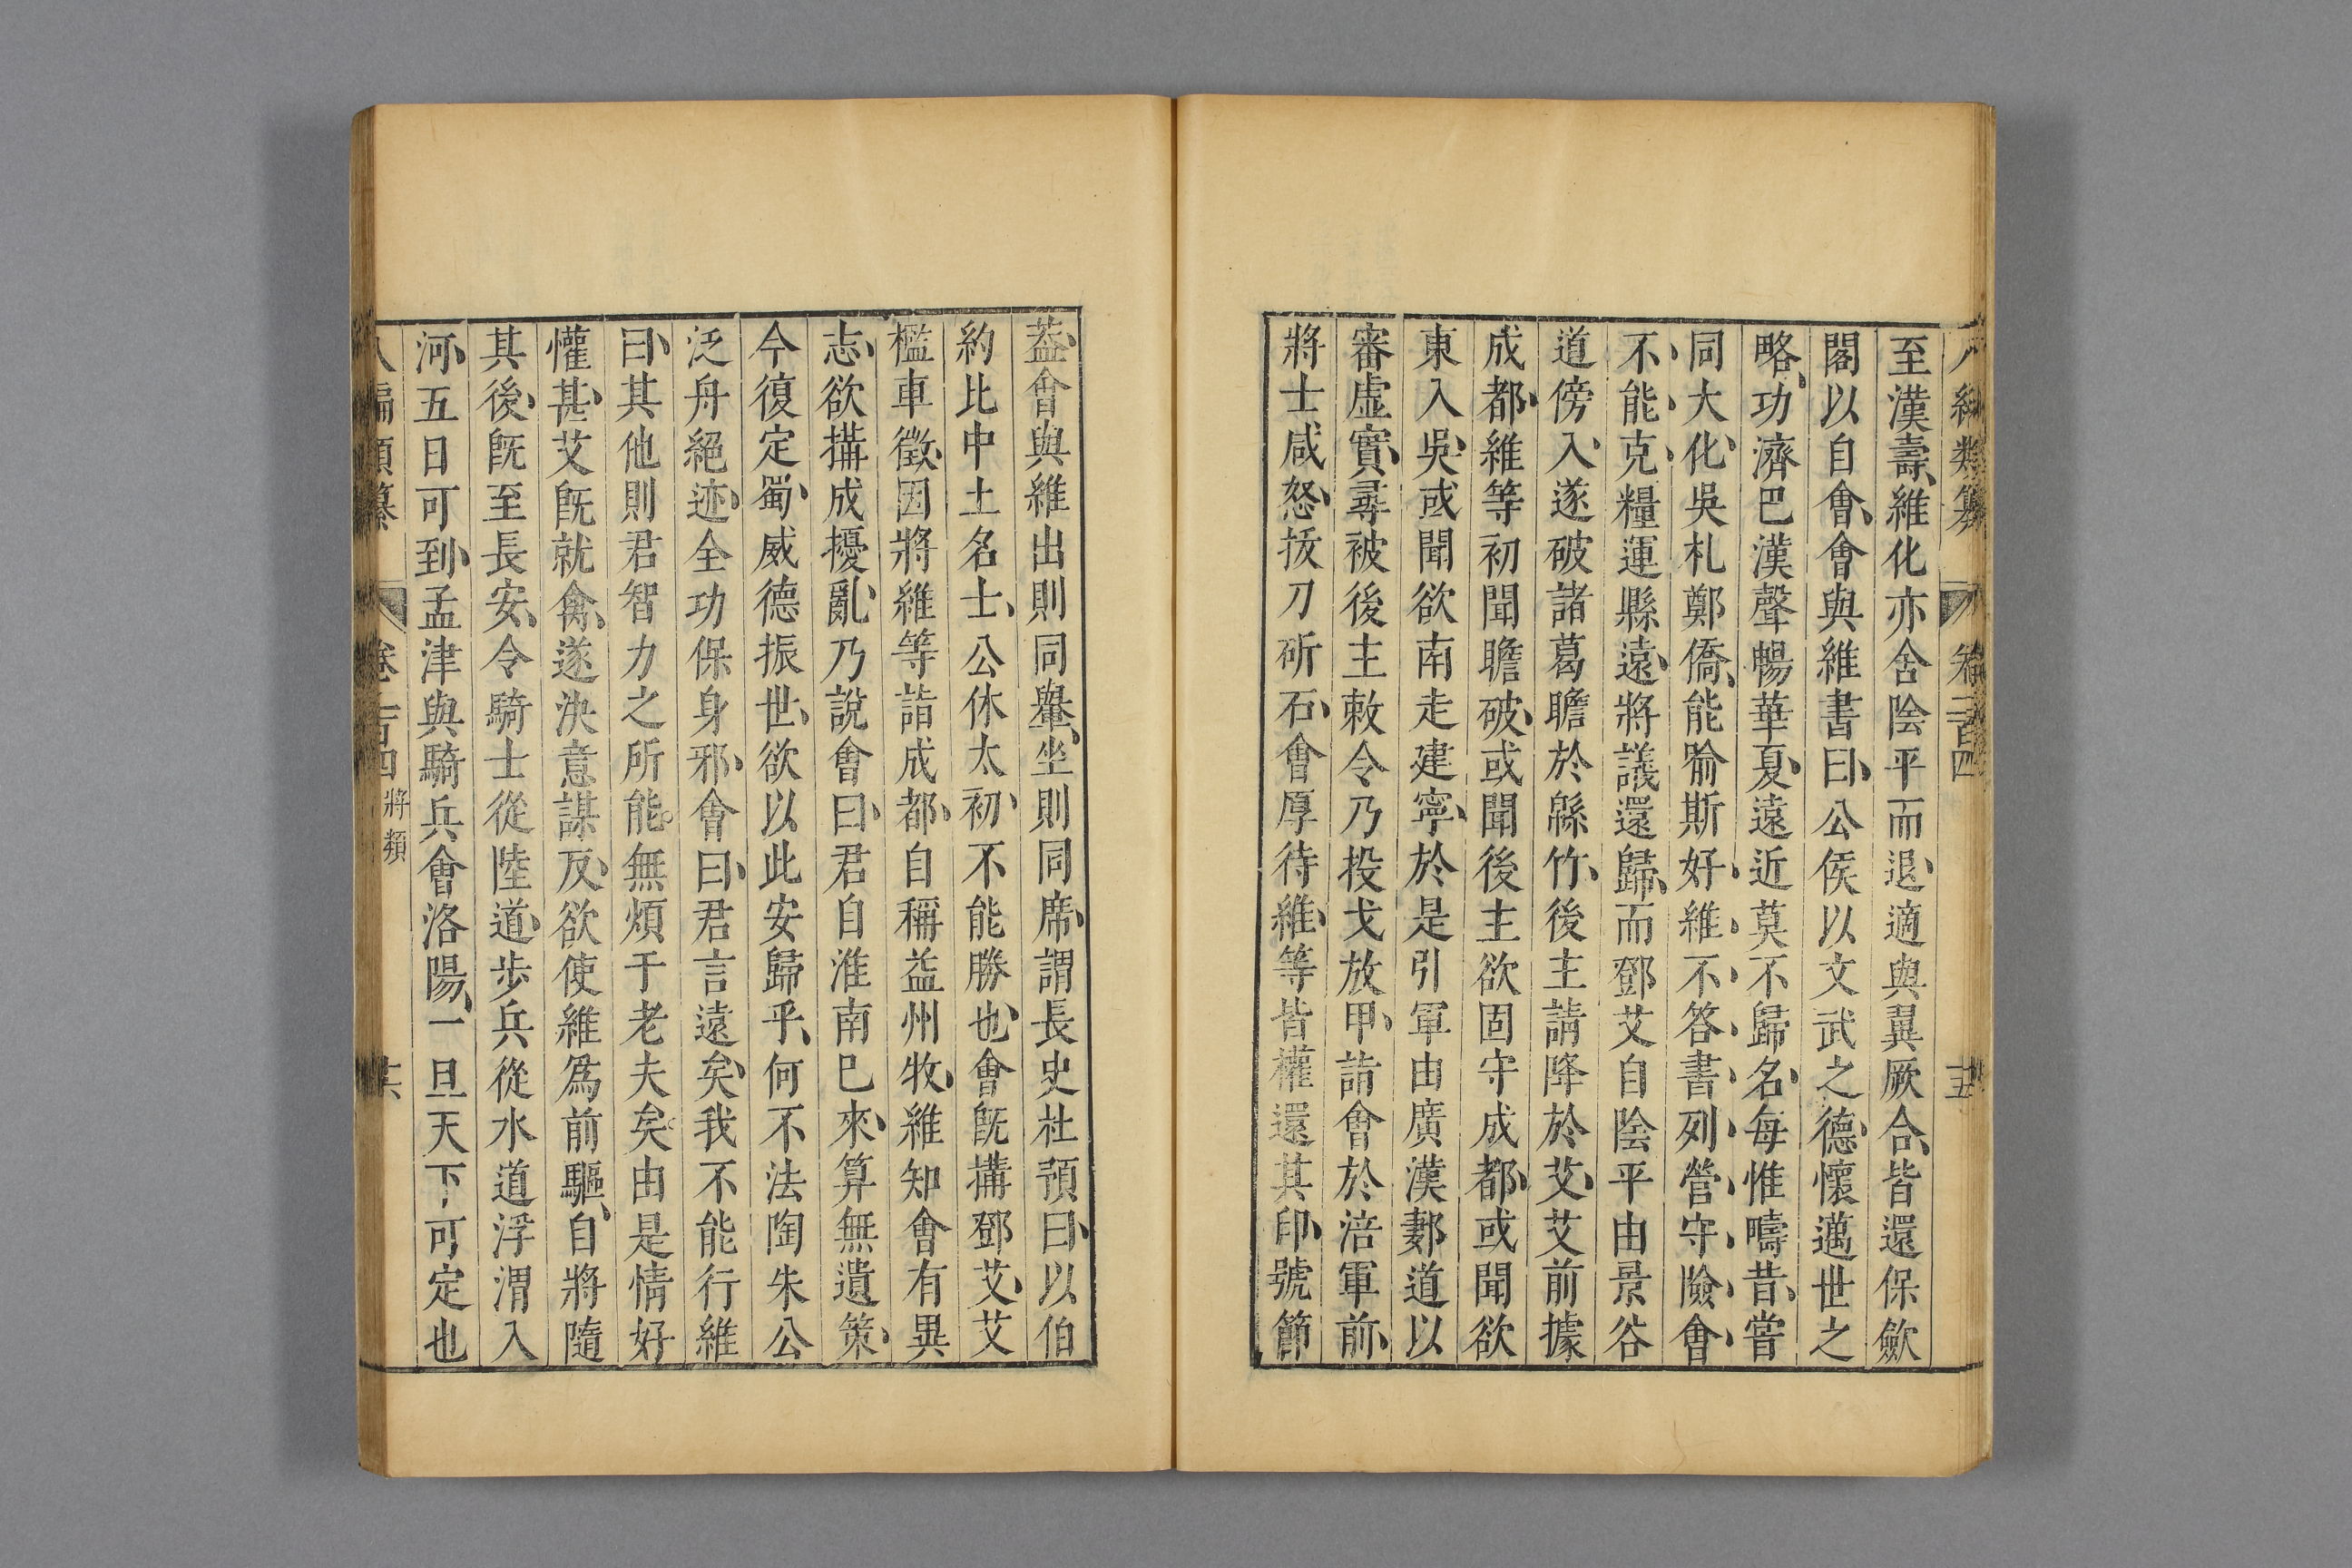 至漢壽維化亦舍陰平而退適與翼厥合皆還保歛
閣以自會會與維書曰公侯以文武之德懷邁世之
略功濟巴漢聲暢華夏遠近莫不歸名每惟疇昔嘗
同大化吳札鄭僑能喻斯好維不答書列營守險會
不能克糧運縣遠將議還歸而鄧艾自陰平由景谷
道傍入遂破諸葛瞻於緜竹後主請降於艾艾前據
成都維等初聞瞻破或聞後主欲固守成都或聞欲
東入吳或聞欲南走建寧於是引軍由廣漢郪道以
審虛實尋被後主敕令乃投戈放甲詣會於涪軍前
將士咸怒拔刀斫石會厚待維等皆權還其印號節
葢會與維出則同轝坐則同席謂長史杜預曰以伯
約比中土名士公休太初不能勝也會旣搆鄧艾艾
檻車徵因將維等詣成都自稱益州牧維知會有異
志欲搆成擾亂乃說會曰君自淮南已來算無遺策
今復定蜀威德振世欲以此安歸乎何不法陶朱公
泛舟絕迹全功保身邪會曰君言遠矣我不能行維
曰其他則君智力之所能無煩于老夫矣由是情好
懽甚艾旣就禽遂決意謀反欲使維爲前驅自將隨
其後旣至長安令騎士從陸道步兵從水道浮渭入
河五日可到孟津與騎兵會洛陽一旦天下可定也
將類